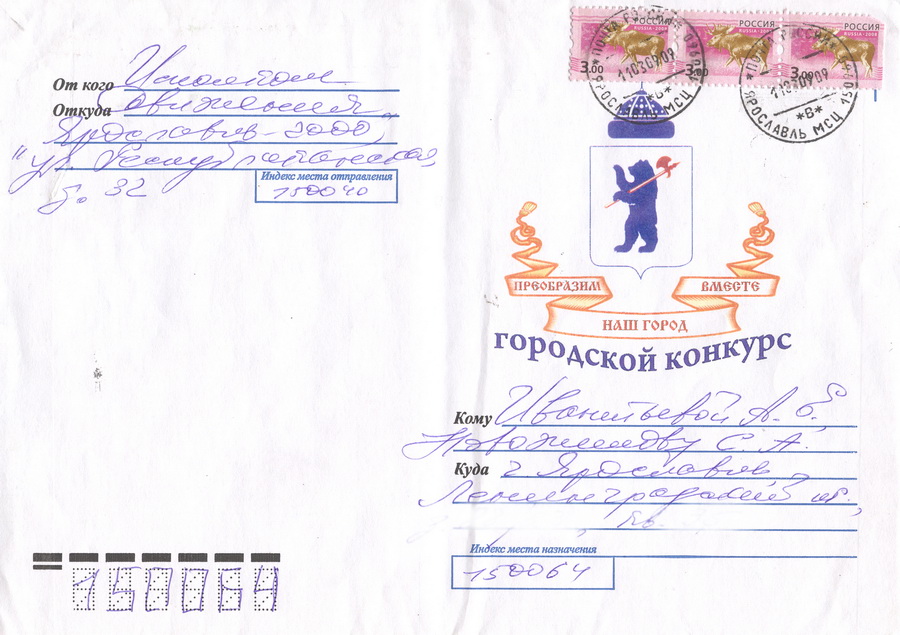 От кого
Откуда
Ярославль-2000,
ул. Республиканская,
д. 32
Индекс места отправления
150040
РОССИЯ РОССИЯ РОССИЯ
RUSSIA·2008 RUSSIA·2008 RUSSIA·2008
3.00 3.00 3.00
ПОЧТА РОССИИ
11030909
ЯРОСЛАВЛЬ МСЦ 150960
*В*
ПОЧТА РОССИИ
11030909
ЯРОСЛАВЛЬ МСЦ 150960
*В*
ПРЕОБРАЗИМ ВМЕСТЕ
НАШ ГОРОД
ГОРОДСКОЙ КОНКУРС
Кому А. Б.,
С. А.
Куда г. Ярославль,
Ленинградский пр.,
кв.
Индекс места назначения
150064
150064